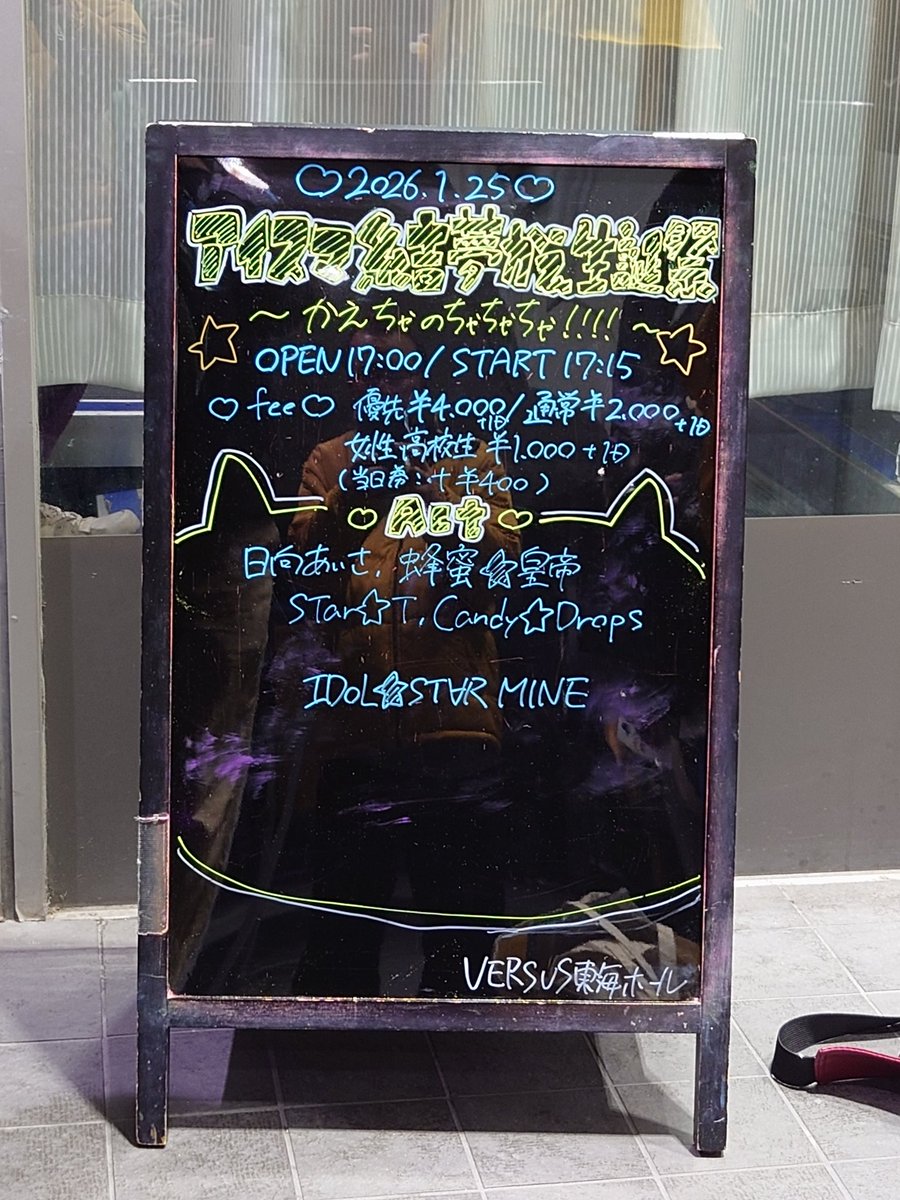 ♡2026.1.25♡
アイスマ結音夢楓生誕祭
～かえちゃのちゃちゃちゃ!!!!～
OPEN17:00/START 17:15
♡fee♡ 優先¥4.000+1D/通常¥2.000+1D
女性高校生 ¥1.000+1D
(当日券:+¥400)
♡Act♡
日向あいさ, 蜂蜜☆皇帝
STar☆T, Candy☆Drops
IDoL☆STAR MINE
VERSUS東海ホール